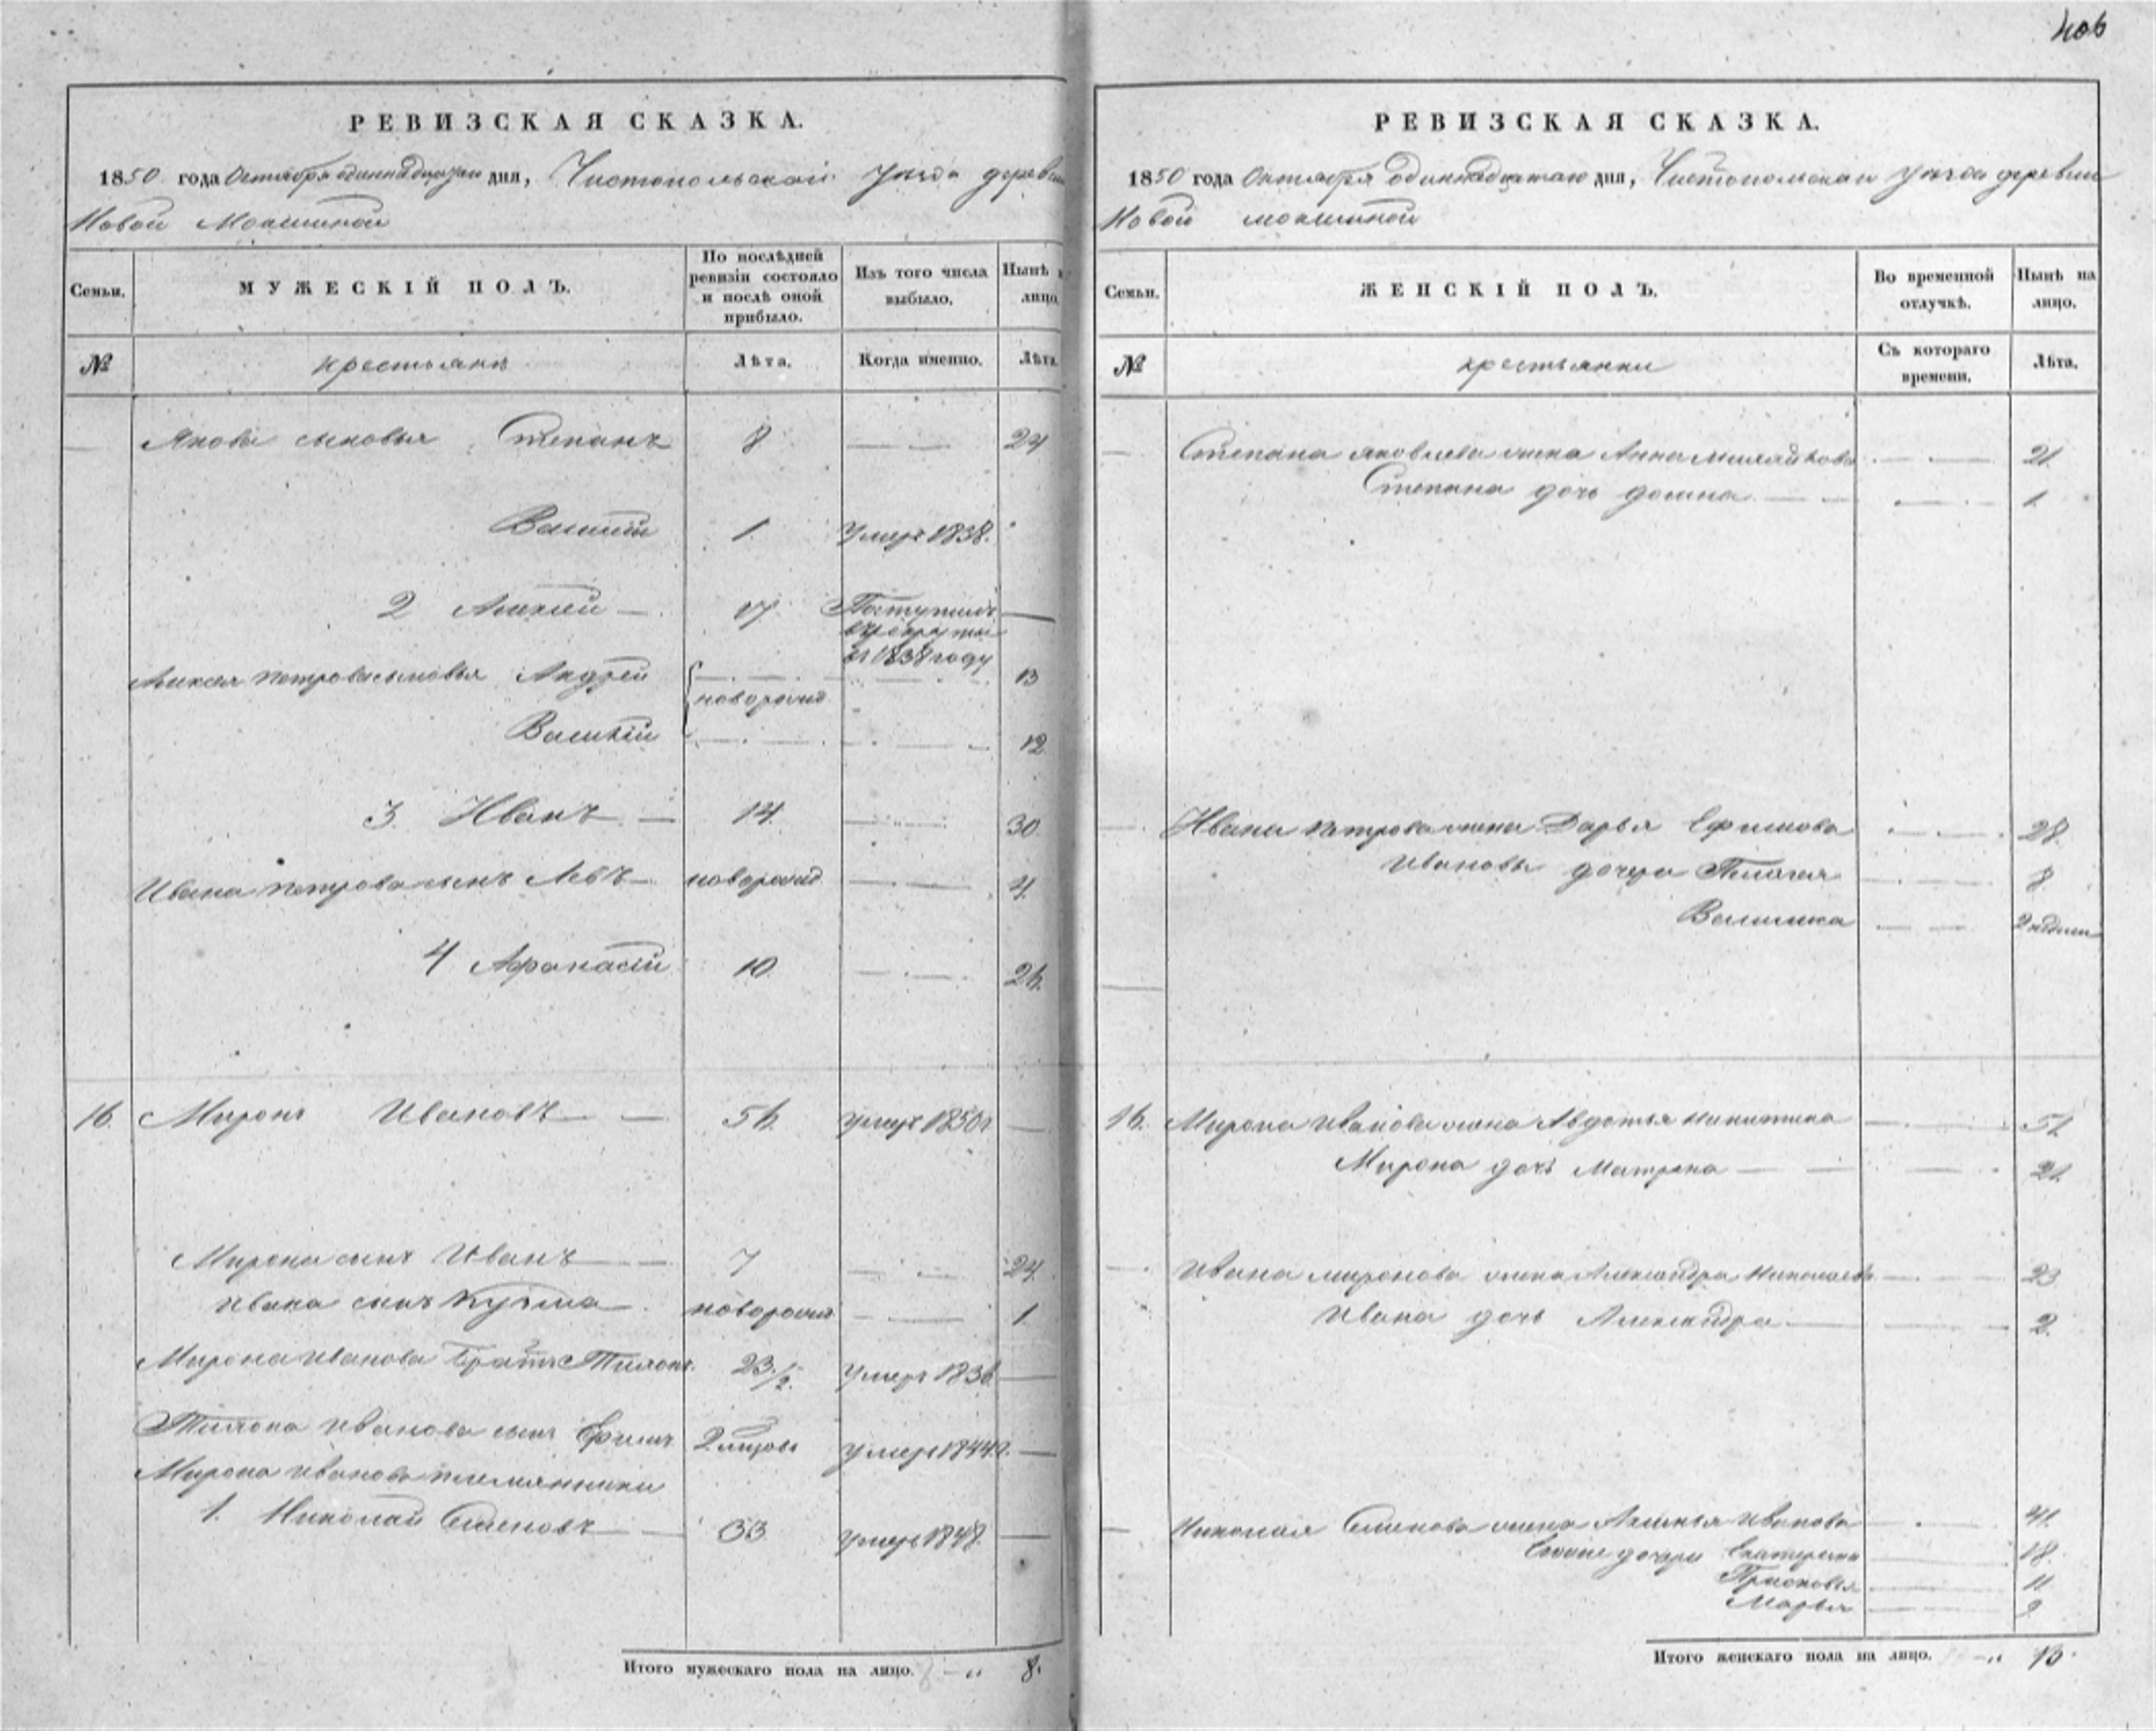 406
РЕВИЗСКАЯ СКАЗКА.
1850 года Октября одиннадцатаго дня, Чистопольскаго Уѣзда деревни
Новой Мокшиной
Семьи.
МУЖЕСКІЙ ПОЛЪ.
По послѣдней
ревизіи состояло
и послѣ оной
прибыло.
Изъ того числа
выбыло.
Нынѣ
лицо.
№
крестьяне
Лѣта.
Когда именно.
Лѣта.
Якова сыновья Степанъ 8 24
Василій 1. Умеръ 1838.
2 Алексѣй 17 Поступилъ
въ рекруты
въ 1838 году
Алексѣя Петрова сыновья Андрей 13
новорожд
Василій 12
3. Иванъ 14. 30.
Ивана Петрова сынъ Левъ новорожд 4.
4 Афанасій 10. 26.
16. Миронъ Ивановъ 56. умеръ 1850г
Мирона сынъ Иванъ 7 24.
Ивана сынъ Кузьма новорожд 1
Мирона Иванова братъ Тихонъ 23 1/2. Умеръ 1836
Тихона Иванова сынъ Ефимъ умеръ 1844г.
Мирона Иванова племянники
1. Николай Семеновъ 33 умеръ 1848.
Итого мужескаго пола на лицо. 8.
РЕВИЗСКАЯ СКАЗКА.
1850 года Октября одиннадцатаго дня, Чистопольскаго Уѣзда деревни
Новой мокшиной
Семьи.
ЖЕНСКІЙ ПОЛЪ.
Во временной
отлучкѣ.
Нынѣ на
лицо.
№
крестьянки
Съ котораго
времени.
Лѣта.
Степана Яковлева жена Анна 21.
Степана дочь домна 1.
Ивана Петрова жена Дарья Ефимова 28.
Ивановы дочери Пелагея 8
2 недели
16. Мирона Иванова жена Авдотья Никитина 51.
Мирона дочь Матрена 21.
Ивана миронова жена Александра Николаева 23
Ивана дочь Александра 2.
Николая Семенова жена Аксинья Иванова 41.
дочери Екатерина 18.
Прасковья 11.
Марья 9
Итого женскаго пола на лицо. 13.